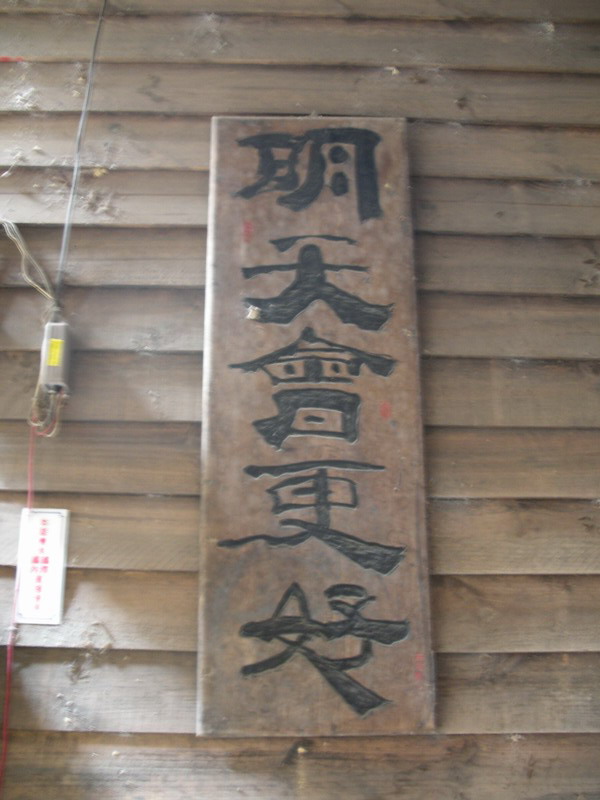 明天會更好